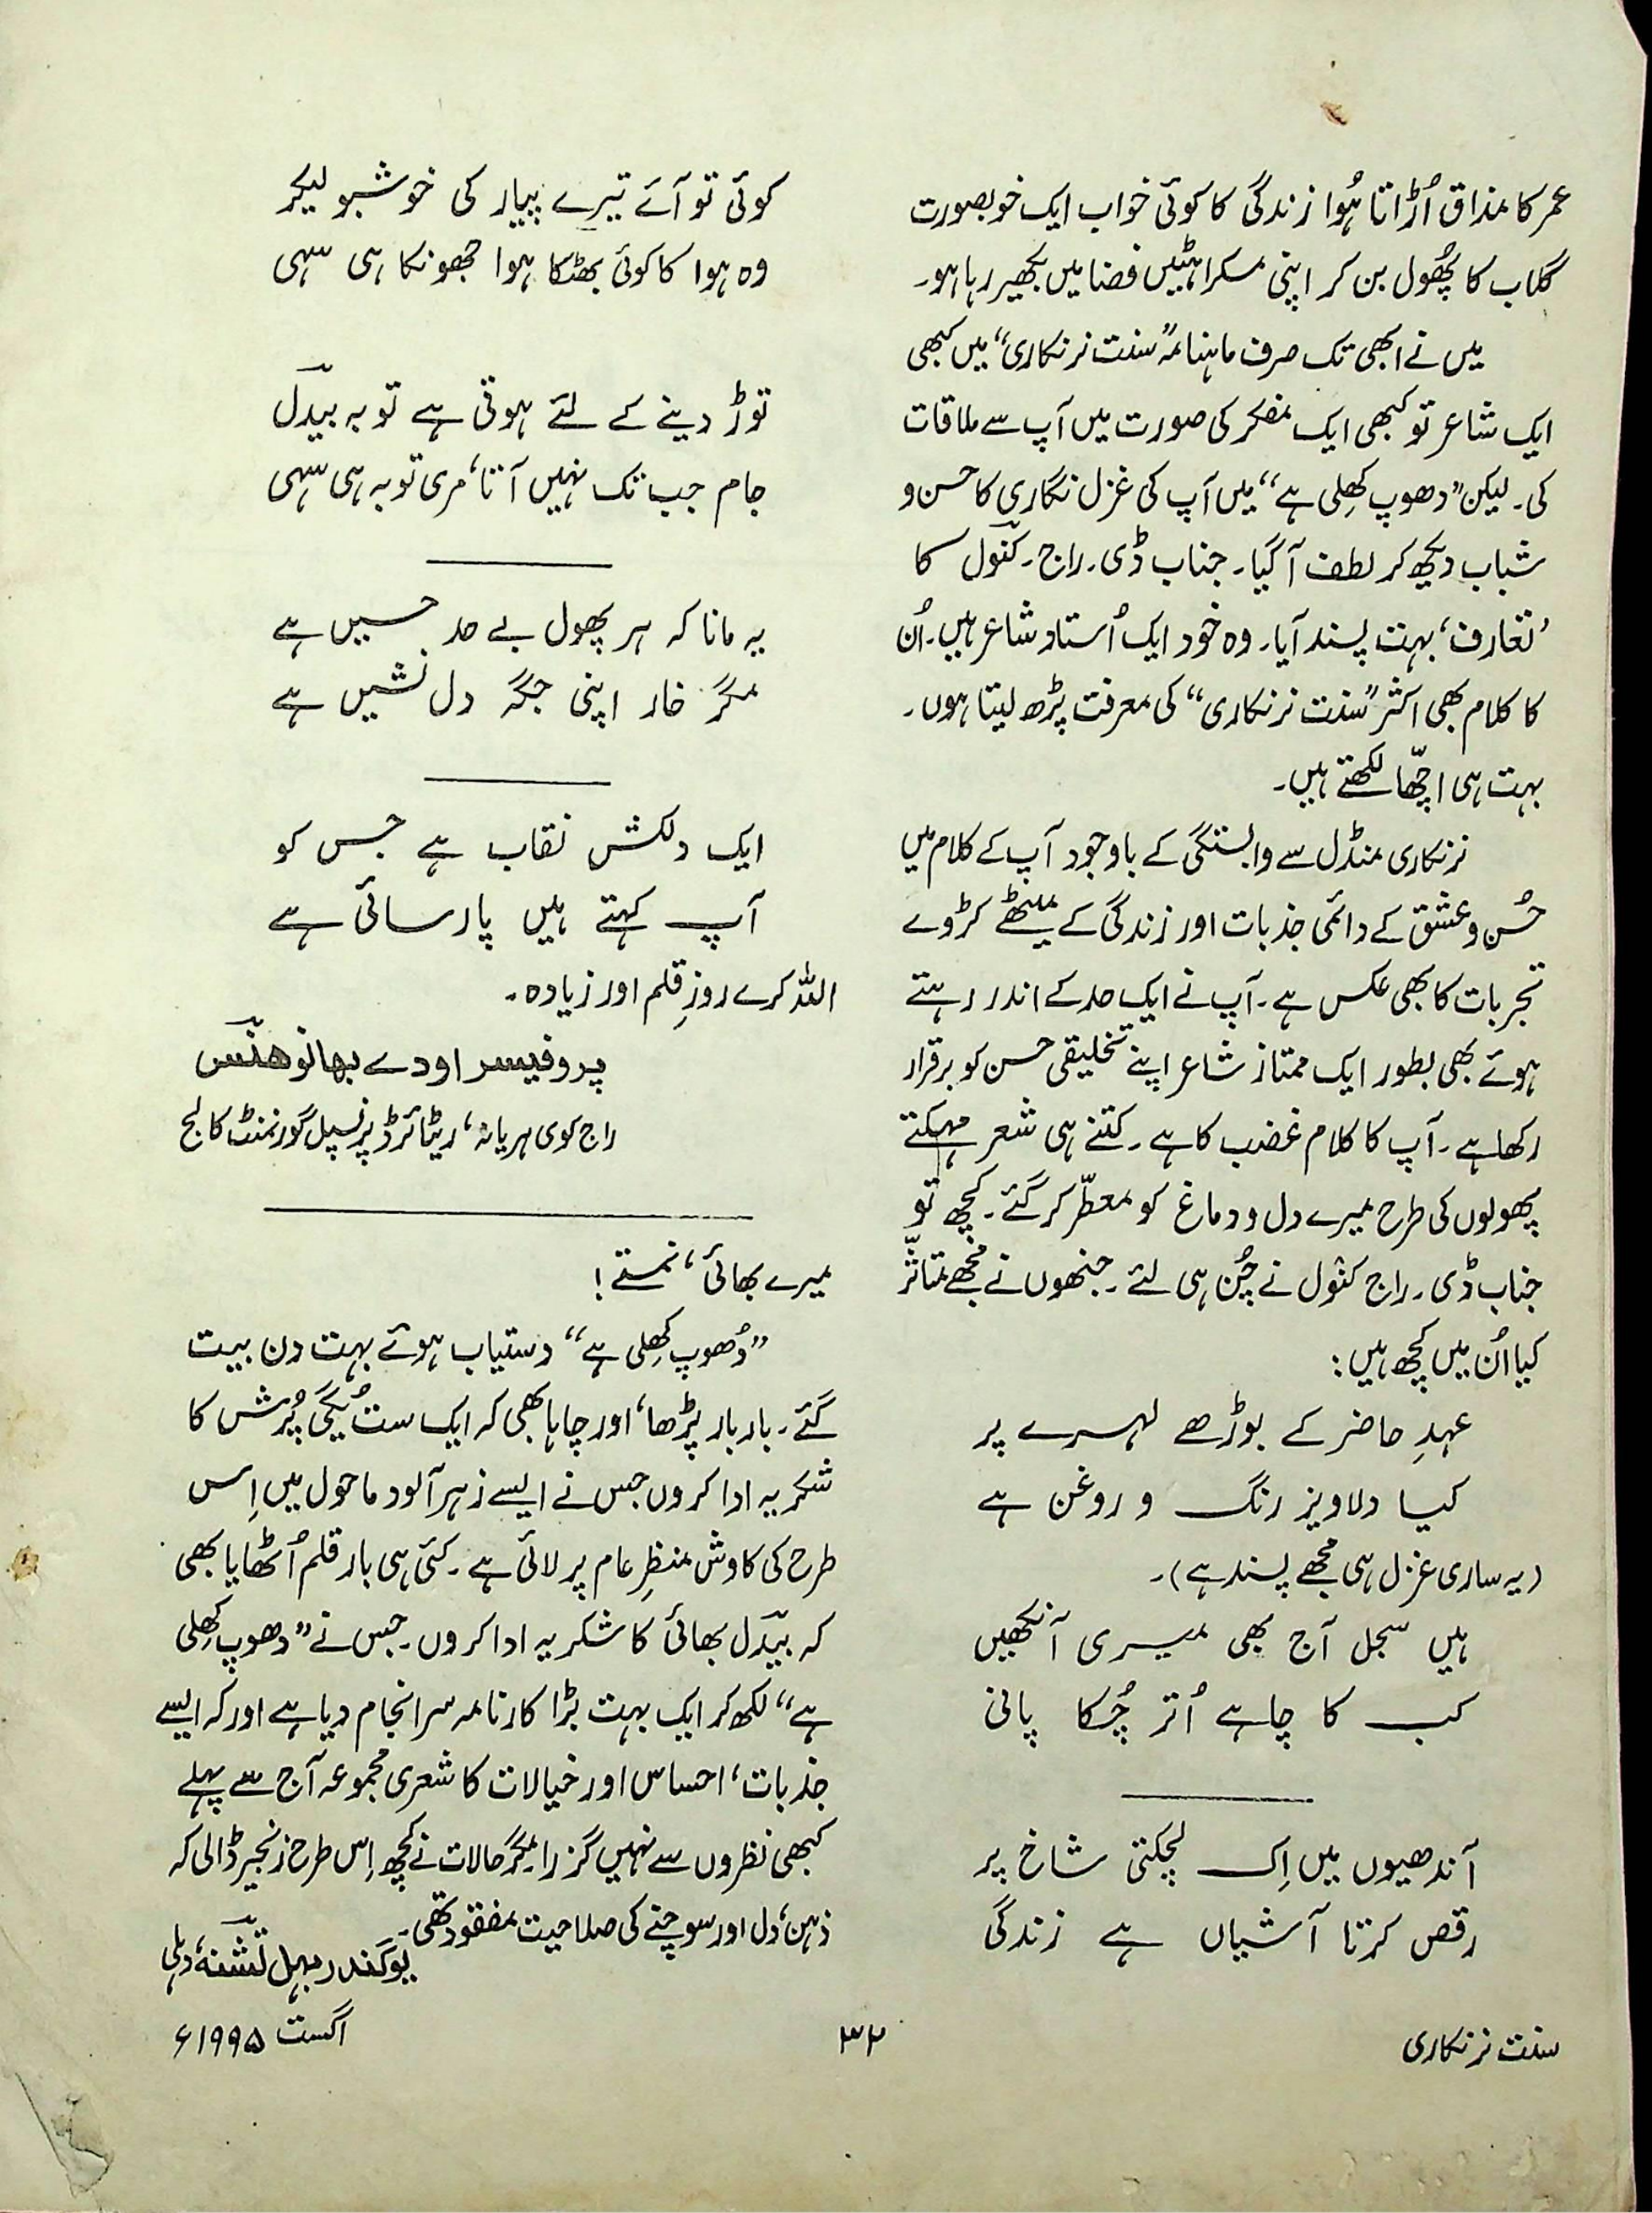 عمر کا مذاق اُڑاتا ہُوا زندگی کا کوئی خواب ایک خوبصورت
گلاب کا پھُول بن کر اپنی مسکراہٹیں فضا میں بکھیر رہا ہو۔
میں نے ابھی تک صرف ماہنامہ ”سنت نرنکاری“ میں کبھی
ایک شاعر تو کبھی ایک مفکر کی صورت میں آپ سے ملاقات
کی۔ لیکن ”دھوپ کھِلی ہے“ میں آپ کی غزل نگاری کا حسن و
شباب دیکھ کر لطف آ گیا۔ جناب ڈی۔ راج۔ کنول کا
’تعارف‘ بہت پسند آیا۔ وہ خود ایک اُستاد شاعر ہیں۔ اُن
کا کلام بھی اکثر ”سنت نرنکاری“ کی معرفت پڑھ لیتا ہوں۔
بہت ہی اچّھا لکھتے ہیں۔
نرنکاری منڈل سے وابستگی کے باوجود آپ کے کلام میں
حُسن و عشق کے دائمی جذبات اور زندگی کے میٹھے کڑوے
تجربات کا بھی عکس ہے۔ آپ نے ایک حد کے اندر رہتے
ہوئے بھی بطور ایک ممتاز شاعر اپنے تخلیقی حسن کو برقرار
رکھا ہے۔ آپ کا کلام غضب کا ہے۔ کتنے ہی شعر مہکتے
پھولوں کی طرح میرے دل و دماغ کو معطّر کر گئے۔ کچھ تو
جناب ڈی۔ راج کنول نے چُن ہی لئے۔ جنھوں نے مُجھے متاثّر
کیا اُن میں کچھ ہیں:
عہدِ حاضر کے بوڑھے لہرے پر
کیا دلاویز رنگ و روغن ہے
(یہ ساری غزل ہی مجھے پسند ہے)۔
ہیں سجل آج بھی میری آنکھیں
کب کا چاہے اُتر چُکا پانی
آندھیوں میں اِک لچکتی شاخ پر
رقص کرتا آشیاں ہے زندگی
کوئی تو آئے تیرے پیار کی خوشبو لیکر
وہ ہوا کا کوئی بھٹکا ہوا جھونکا ہی سہی
توڑ دینے کے لئے ہوتی ہے توبہ بیدلؔ
جام جب تک نہیں آتا، مری توبہ ہی سہی
یہ مانا کہ ہر پھول بے حد حسیں ہے
مگر خار اپنی جگہ دل نشیں ہے
ایک دلکش نقاب ہے جس کو
آپ کہتے ہیں پارسائی ہے
اللہ کرے روزِ قلم اور زیادہ۔
پروفیسر اودے بھانو ھنسؔ
راج کوی ہریانہ، ریٹائرڈ پرنسپل گورنمنٹ کالج
میرے بھائی، نمستے!
”دُھوپ کھِلی ہے“ دستیاب ہوئے بہت دن بیت
گئے۔ بار بار پڑھا، اور چاہا بھی کہ ایک ست یُگی پُرش کا
شکریہ ادا کروں جس نے ایسے زہر آلود ماحول میں اِس
طرح کی کاوش منظرِ عام پر لائی ہے۔ کئی ہی بار قلم اُٹھایا بھی
کہ بیدلؔ بھائی کا شکریہ ادا کروں۔ جس نے ”دھوپ کھِلی
ہے“ لکھ کر ایک بہت بڑا کارنامہ سرانجام دیا ہے اور کہ ایسے
جذبات، احساس اور خیالات کا شعری مجموعہ آج سے پہلے
کبھی نظروں سے نہیں گزرا۔ مگر حالات نے کچھ اِس طرح زنجیر ڈالی کہ
ذہن، دل اور سوچنے کی صلاحیت مفقود تھی۔
یوگندر بہل تشنہؔ، دہلی
سنت نرنکاری
۳۲
اگست ۱۹۹۵ء